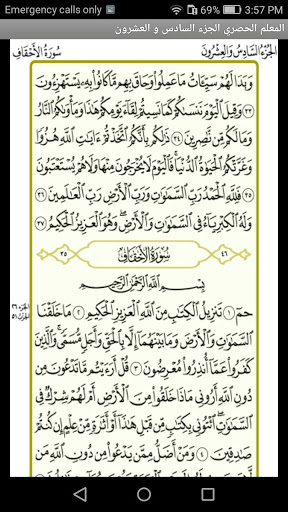 Emergency calls only 3:57 PM
المعلم الحصري الجزء السادس و العشرون
الجزء السادس والعشرون سورة الأحقاف
وَبَدَا لَهُمْ سَيِّئَاتُ مَا عَمِلُوا وَحَاقَ بِهِم مَّا كَانُوا بِهِ يَسْتَهْزِءُونَ
٣٣ وَقِيلَ الْيَوْمَ نَنسَىٰكُمْ كَمَا نَسِيتُمْ لِقَاءَ يَوْمِكُمْ هَٰذَا وَمَأْوَىٰكُمُ النَّارُ
وَمَا لَكُم مِّن نَّٰصِرِينَ ٣٤ ذَٰلِكُم بِأَنَّكُمُ اتَّخَذْتُمْ ءَايَٰتِ اللَّهِ هُزُوًا
وَغَرَّتْكُمُ الْحَيَوٰةُ الدُّنْيَا فَالْيَوْمَ لَا يُخْرَجُونَ مِنْهَا وَلَا هُمْ يُسْتَعْتَبُونَ
٣٥ فَلِلَّهِ الْحَمْدُ رَبِّ السَّمَٰوَٰتِ وَرَبِّ الْأَرْضِ رَبِّ الْعَٰلَمِينَ ٣٦
وَلَهُ الْكِبْرِيَاءُ فِي السَّمَٰوَٰتِ وَالْأَرْضِ وَهُوَ الْعَزِيزُ الْحَكِيمُ ٣٧
٤٦ سُورَةُ الْأَحْقَافِ ٣٥
بِسْمِ اللَّهِ الرَّحْمَٰنِ الرَّحِيمِ
حمٓ ١ تَنزِيلُ الْكِتَٰبِ مِنَ اللَّهِ الْعَزِيزِ الْحَكِيمِ ٢ مَا خَلَقْنَا
الجزء ٢٦
الحزب ٥١
السَّمَٰوَٰتِ وَالْأَرْضَ وَمَا بَيْنَهُمَا إِلَّا بِالْحَقِّ وَأَجَلٍ مُّسَمًّى وَالَّذِينَ
كَفَرُوا عَمَّا أُنذِرُوا مُعْرِضُونَ ٣ قُلْ أَرَءَيْتُم مَّا تَدْعُونَ مِن
دُونِ اللَّهِ أَرُونِي مَاذَا خَلَقُوا مِنَ الْأَرْضِ أَمْ لَهُمْ شِرْكٌ فِي
السَّمَٰوَٰتِ ائْتُونِي بِكِتَٰبٍ مِّن قَبْلِ هَٰذَا أَوْ أَثَٰرَةٍ مِّنْ عِلْمٍ إِن كُنتُمْ
صَٰدِقِينَ ٤ وَمَنْ أَضَلُّ مِمَّن يَدْعُوا مِن دُونِ اللَّهِ مَن